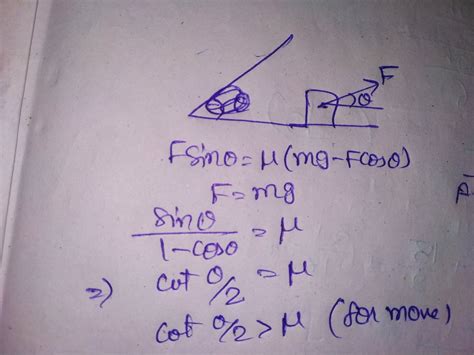 F
θ
Fsinθ = μ(mg-Fcosθ)
F = mg
sinθ/1-cosθ = μ
⇒ cot θ/2 = μ
cot θ/2 > μ (for move)